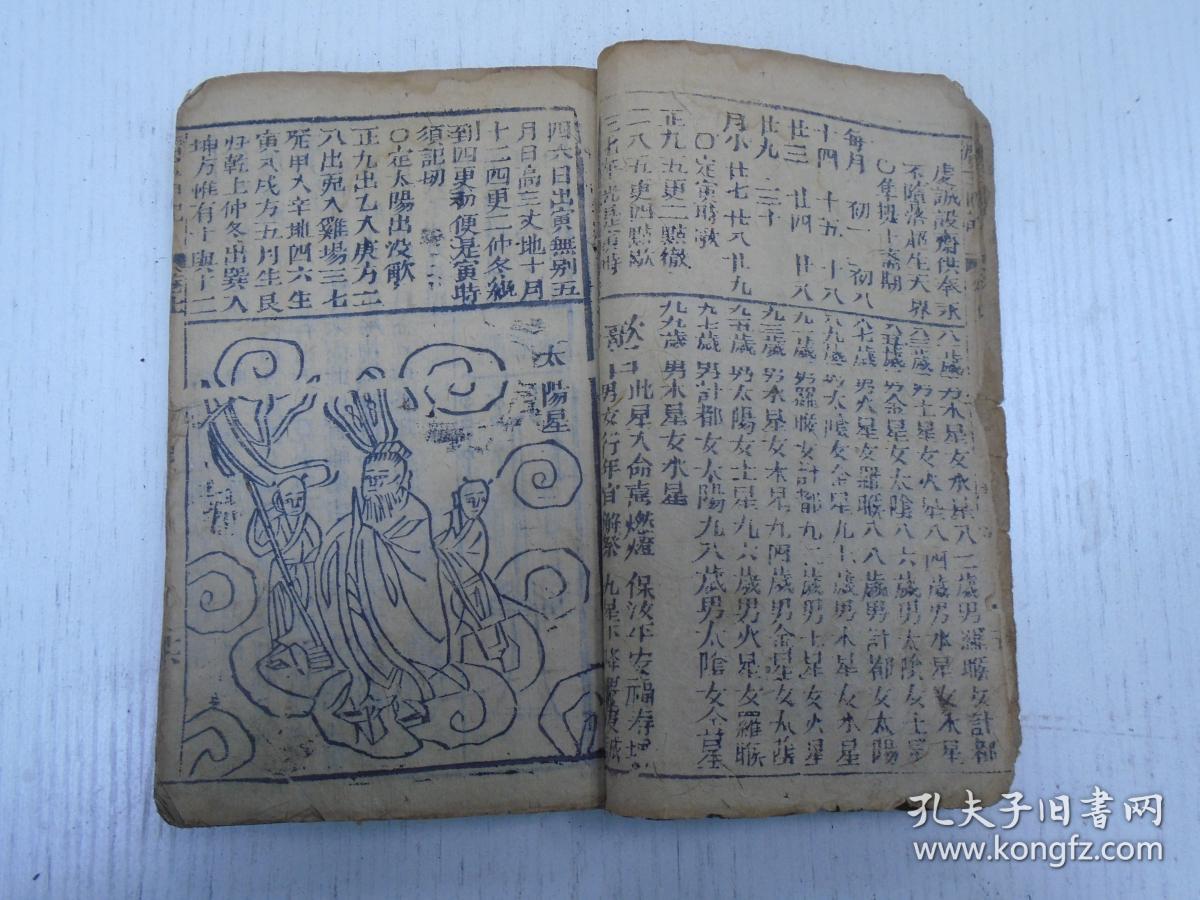 虔誠設齋供
不墮落超生天界
〇每月十齋期
每月 初一 初八
十四 十五 十八
廿三 廿四 廿八
廿九 三十
月小 廿七 廿八 廿九
〇定寅時歌
正九五更二點徹
二八五更四點歇
三七平光是寅時
八一歲男木星女水星八二歲男羅睺女計都
八三歲男土星女火星八四歲男水星女木星
八五歲男金星女太陰八六歲男太陰女土星
八七歲男火星女羅睺八八歲男計都女太陽
八九歲男太陰女金星九十歲男木星女水星
九一歲男羅睺女計都九二歲男土星女火星
九三歲男水星女木星九四歲男金星女太陰
九五歲男太陽女土星九六歲男火星女羅睺
九七歲男計都女太陽九八歲男太陰女金星
九九歲男木星女水星
此星入命喜燃燈 保汝平安福壽增
男女行年宜解祭 九星下降
四六日出寅無別五
月日高三丈地十月
十二四更二仲冬纔
到四更初便是寅時
須記切
〇定太陽出沒歌
正九出乙入庚方二
八出兎入雞場三七
発甲入辛地四六生
寅入戌方五月生艮
歸乾上仲冬出巽入
坤方惟有十與十二
太陽星
孔夫子旧书网
www.kongfz.com